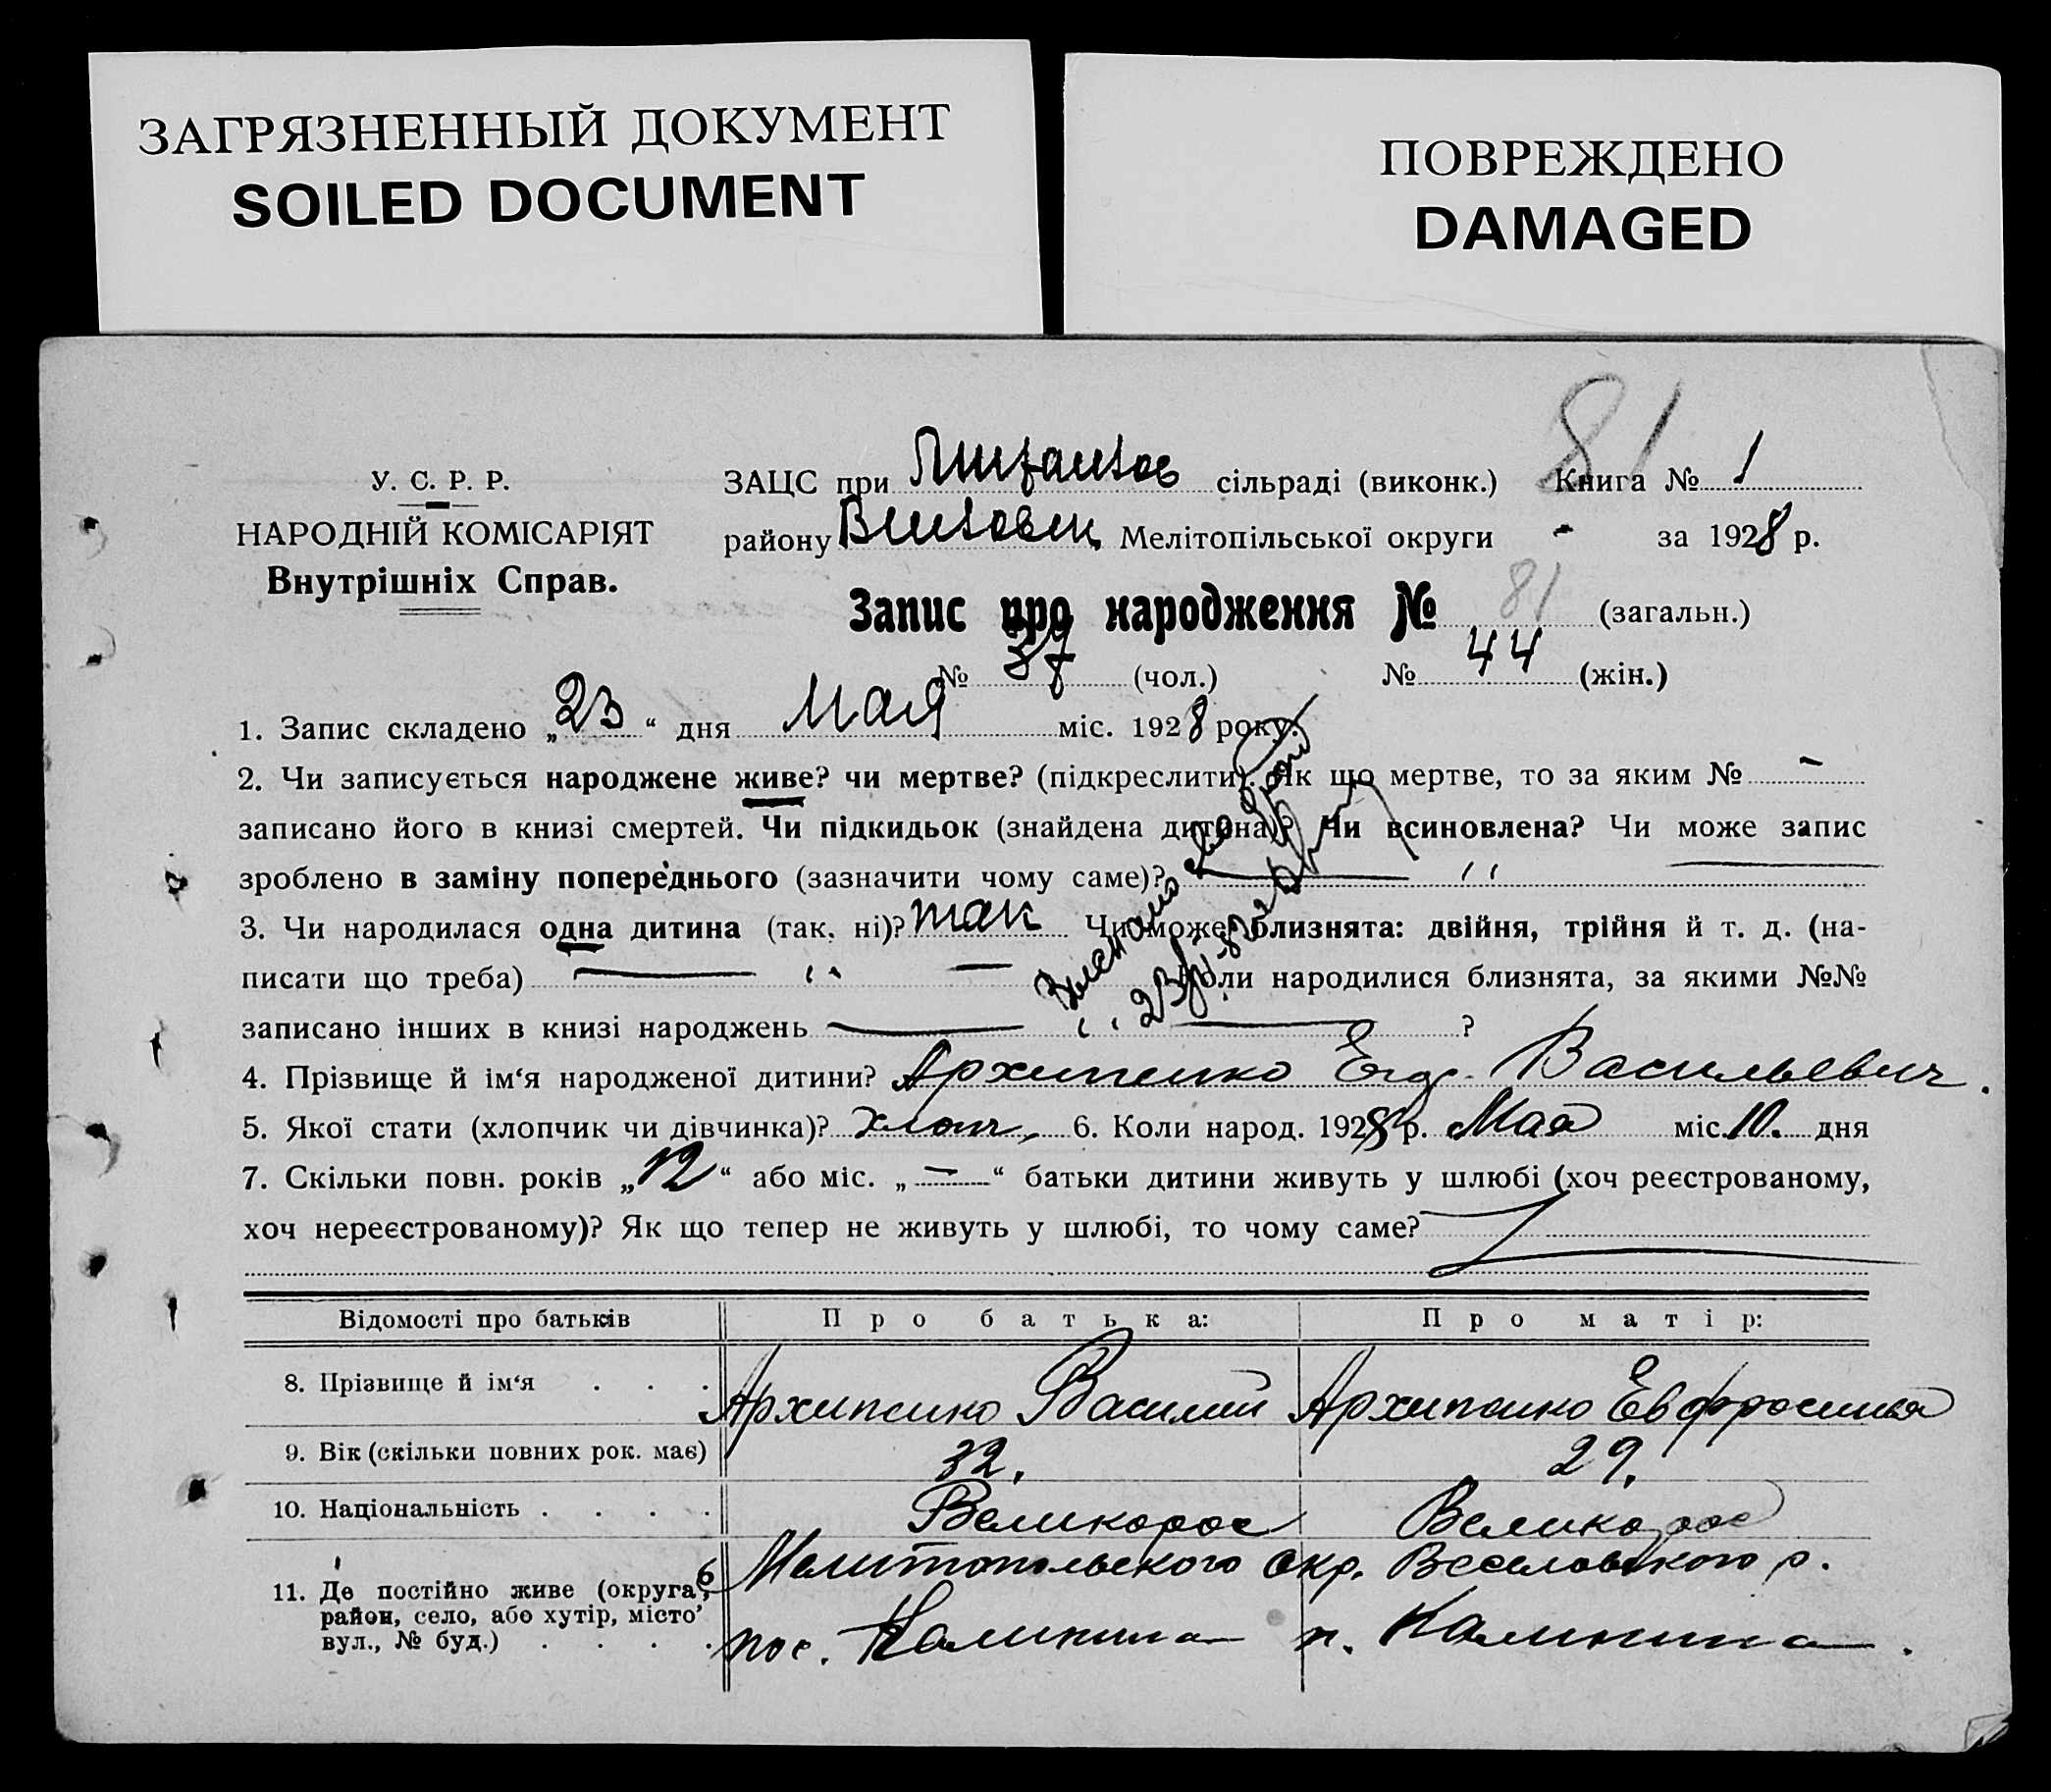 ЗАГРЯЗНЕННЫЙ ДОКУМЕНТ
SOILED DOCUMENT
ПОВРЕЖДЕНО
DAMAGED
81
У. С. Р. Р.
НАРОДНІЙ КОМІСАРІЯТ
Внутрішніх Справ.
ЗАЦС при сільраді (виконк.) Книга № 1
району Мелітопільської округи - за 1928 р.
Запис про народження № 81 (загальн.)
№ 37 (чол.) № 44 (жін.)
1. Запис складено „23“ дня Мая міс. 1928 року.
2. Чи записується народжене живе? чи мертве? (підкреслити). Як що мертве, то за яким № -
записано його в книзі смертей. Чи підкидьок (знайдена дитина)? Чи всиновлена? Чи може запис
зроблено в заміну попереднього (зазначити чому саме)?
3. Чи народилася одна дитина (так, ні)? так Чи може близнята: двійня, трійня й т. д. (на-
писати що треба) Коли народилися близнята, за якими №№
записано інших в книзі народжень ?
4. Прізвище й ім‘я народженої дитини? Архипенко Васильевич.
5. Якої стати (хлопчик чи дівчинка)? хлоп. 6. Коли народ. 1928 р. Мая міс. 10. дня
7. Скільки повн. років „12“ або міс. „—“ батьки дитини живуть у шлюбі (хоч реєстрованому,
хоч нереєстрованому)? Як що тепер не живуть у шлюбі, то чому саме?
Відомості про батьків Про батька: Про матір:
8. Прізвище й ім‘я . . . Архипенко Василий Архипенко Евфросинья
9. Вік (скільки повних рок. має) 32. 29.
10. Національність . . . . Великорос Великорос
11. Де постійно живе (округа, район, село, або хутір, місто, вул., № буд.) . . . . Мелитопольского окр. Веселовского р.
пос. Калинина п. Калинина.